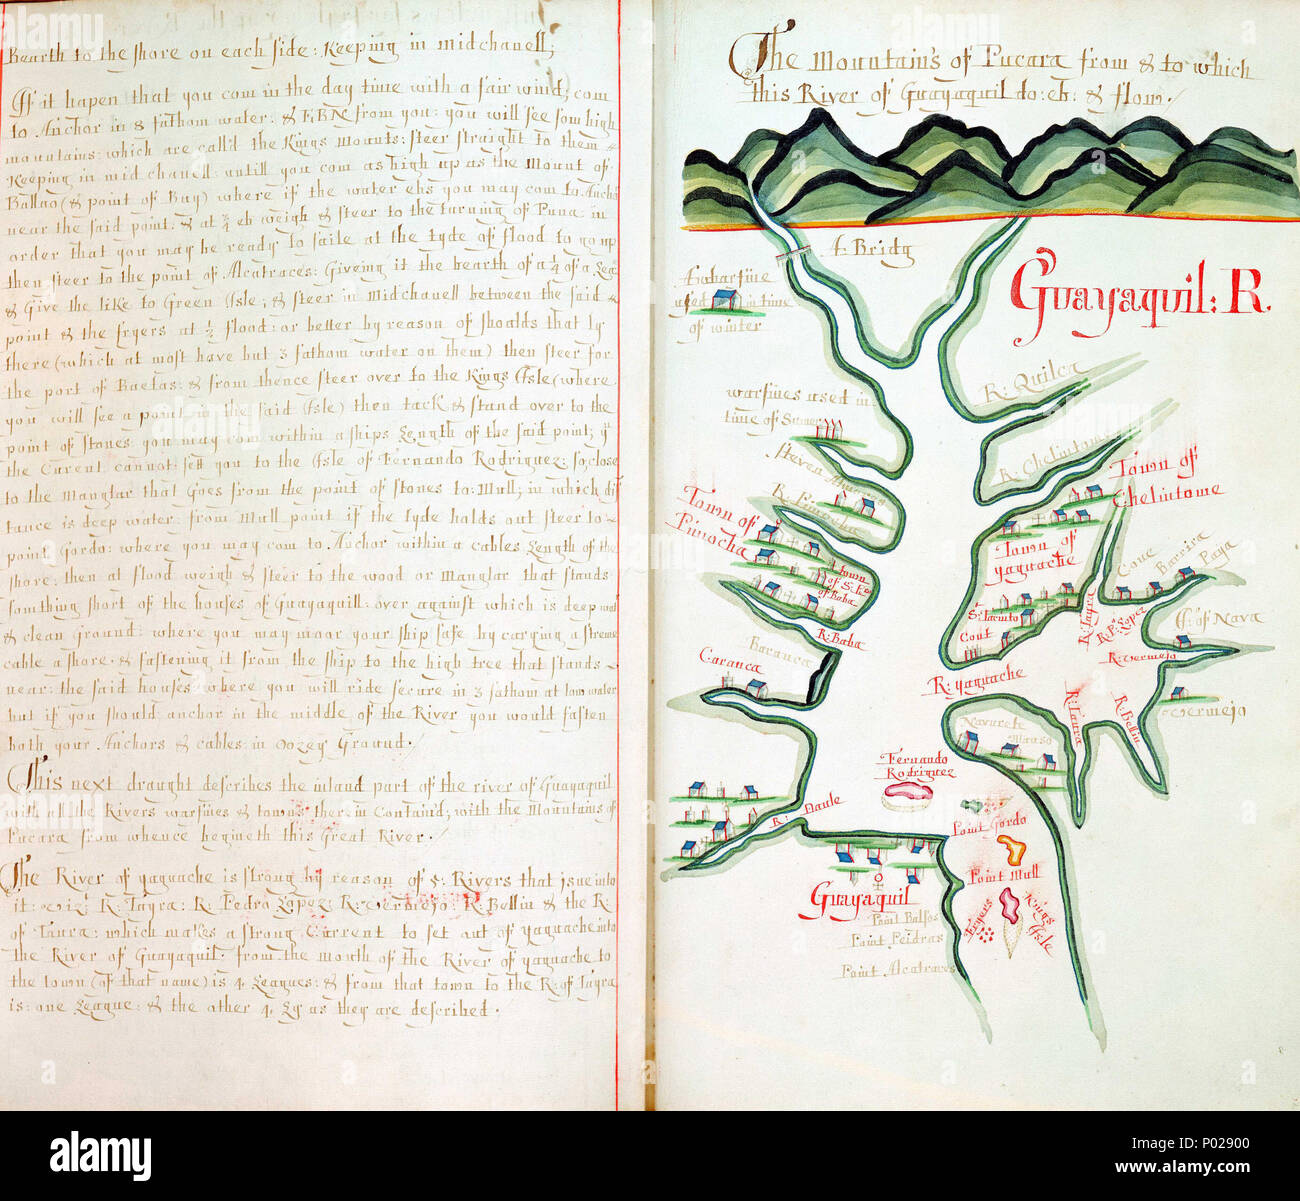 bearth to the shore on each side: Keeping in midchanell;
If it hapen that you com in the day time with a fair wind, com
to Anchor in 8 fathom water: & EBN from you: you will see som high
mountains: which are call'd the Kings mounts: steer straight to them
Keeping in mid chanell: untill you com as high up as the Mount of
Ballao (& point of Buy) where if the water ebs you may com to Ancho
near the said point: & at ¾ eb weigh & steer to the turning of Puna in
order that you may be ready to saile at the tyde of flood to go up
then steer to the point of Alcatraces: Giveing it the bearth of a ¼ of a Lea
& Give the like to Green Isle; & steer in Midchanell between the said
point & the fryers at ½ flood: or better by reason of shoalds that ly
there (which at most have but 3 fathom water on them) then steer for
the port of Baetas: & from thence steer over to the Kings Isle (where
you will see a point in the said Isle) then tack & stand over to the
point of stones you may com within a ships Length of the said point; yt
the Curent cannot sett you to the Isle of Fernando Rodriguez: so, close
to the Manglar that Goes from the point of stones to: Mull, in which dis
tance is deep water. from Mull point if the tyde holds out steer to
point Gordo: where you may com to Anchor within a cables Length of the
shore. then at flood weigh & steer to the wood or Manglar that stands
somthing short of the houses of Guayaquill: over against which is deep wat
& clean Ground: where you may moor your ship safe by carying a streme
cable a shore. & fastening it from the ship to the high tree that stands
near: the said houses where you will ride secure in 3 fathom at low water
but if you should anchor in the middle of the River you would fasten
both your Anchors & cables in Oozey Ground.
This next draught describes the inland part of the river of Guayaquil
with all the Rivers warfines & towns therein Contain'd, with the Mountains of
Pucara from whence begineth this Great River.
The River of yaguache is strong by reason of 5: Rivers that issue into
it: viz: R: Tayra: R: Pedro Lopez: R: vermejo: R: Bellin & the R:
of Taura: which makes a strong Current to set out of yaguache into
the River of Guayaquil. from the mouth of the River of yaguache to
the town (of that name) is 4 Leagues: & from that town to the R: of Tayra
is: one League: & the other 4 Lgs as they are described.
The Mountains of Pucara from & to which
this River of Guayaquil do: eb: & flow.
A Bridg
Guayaquil: R.
used in time
of winter
R: Quilca
warfines used in
time of Sumer
R: Chelintome
Town of
Chelintome
Town of
Pimocha
R: Pimocha
Town of
yaguache
town
of St. Fco
of Baba
R: Baba
St. Jacinto
Cont
R: Tayra
R: Po. Lopez
Coue
Barrira
Paya
Is: of Nava
R: vermejo
vermejo
Baranca
Caranca
R: yaguache
R: Taura
R: Bellin
Navarete
Miraso
Fernando
Rodriguez
R: Daule
Point Gordo
Point Mull
Guayaquil
Fryers
Kings
Isle
Point Balsos
Point Peidras
Point Alcatraves
alamy
Image ID: P02900
www.alamy.com